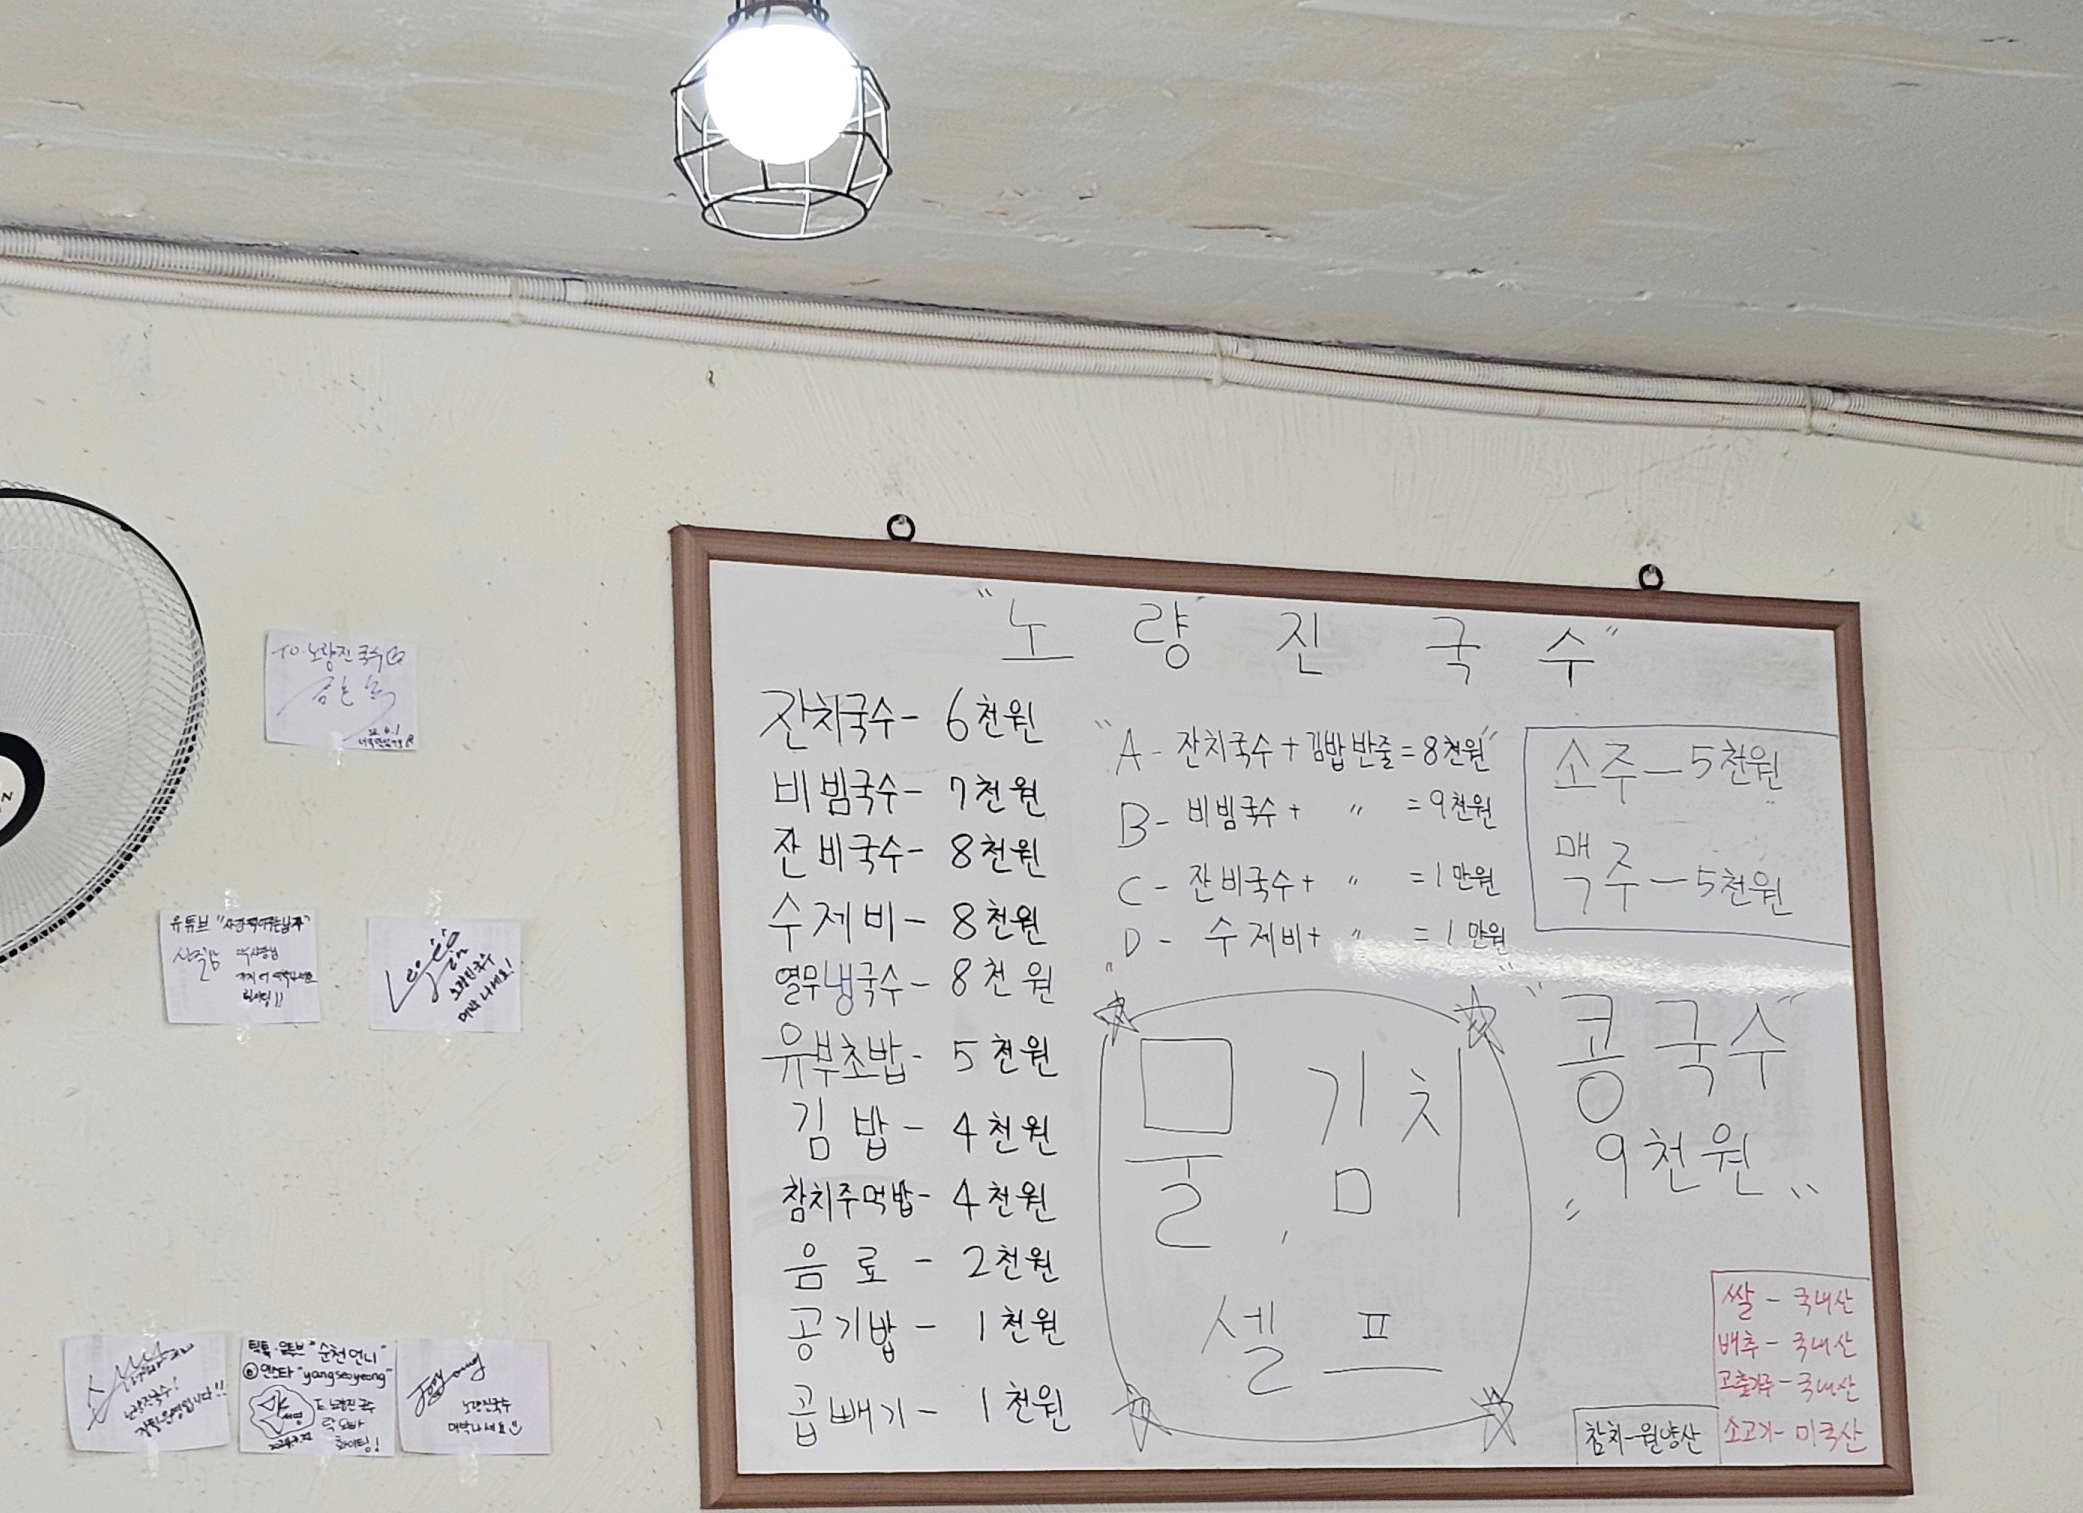 "노량진국수"
잔치국수 - 6천원
비빔국수 - 7천원
잔비국수 - 8천원
수제비 - 8천원
열무냉국수 - 8천원
유부초밥 - 5천원
김밥 - 4천원
참치주먹밥 - 4천원
음료 - 2천원
공기밥 - 1천원
곱빼기 - 1천원
"A - 잔치국수 + 김밥반줄 = 8천원"
B - 비빔국수 + 〃 = 9천원
C - 잔비국수 + 〃 = 1만원
"D - 수제비 + 〃 = 1만원"
물, 김치
셀프
소주 - 5천원
맥주 - 5천원
"콩국수"
"9천원"
쌀 - 국내산
배추 - 국내산
고춧가루 - 국내산
소고기 - 미국산
참치 - 원양산
TO. 노량진국수
22. 6. 1
유튜브
노량진국수
대박나세요!
노량진국수!
틱톡·유튜브 "순천언니"
인스타 "yangseoyeong"
To. 노량진국수
화이팅!
노량진국수
대박나세요